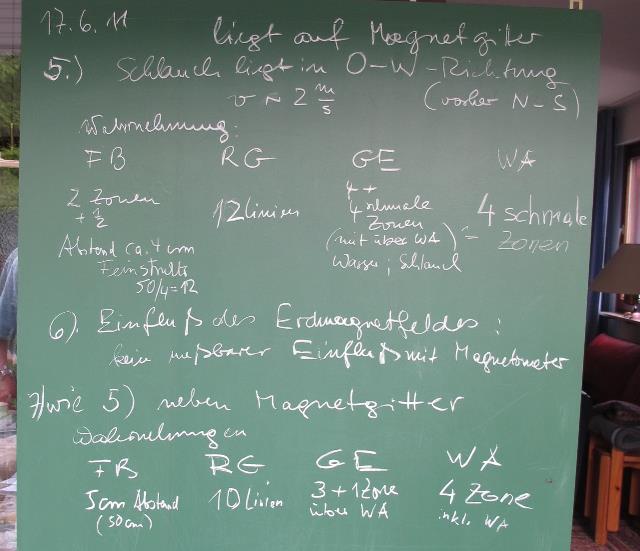 17.6.11
liegt auf Magnetgitter
5.) Schlauch liegt in O-W-Richtung
v ~ 2 m/s (vorher N-S)
Wahrnehmung:
FB RG GE WA
2 Zonen + 1/2
12 Linien
4 + 4 schmale Zonen (mit über WA) Wasser; Schlauch
= 4 schmale Zonen
Abstand ca. 4 cm
Feinstruktur
50/4=12
6). Einfluß des Erdmagnetfeldes:
kein meßbarer Einfluß mit Magnetometer
7) wie 5) neben Magnetgitter
Wahrnehmungen
FB RG GE WA
5cm Abstand 10 Linien 3+1 Zone 4 Zone
(50cm) über WA inkl. WA